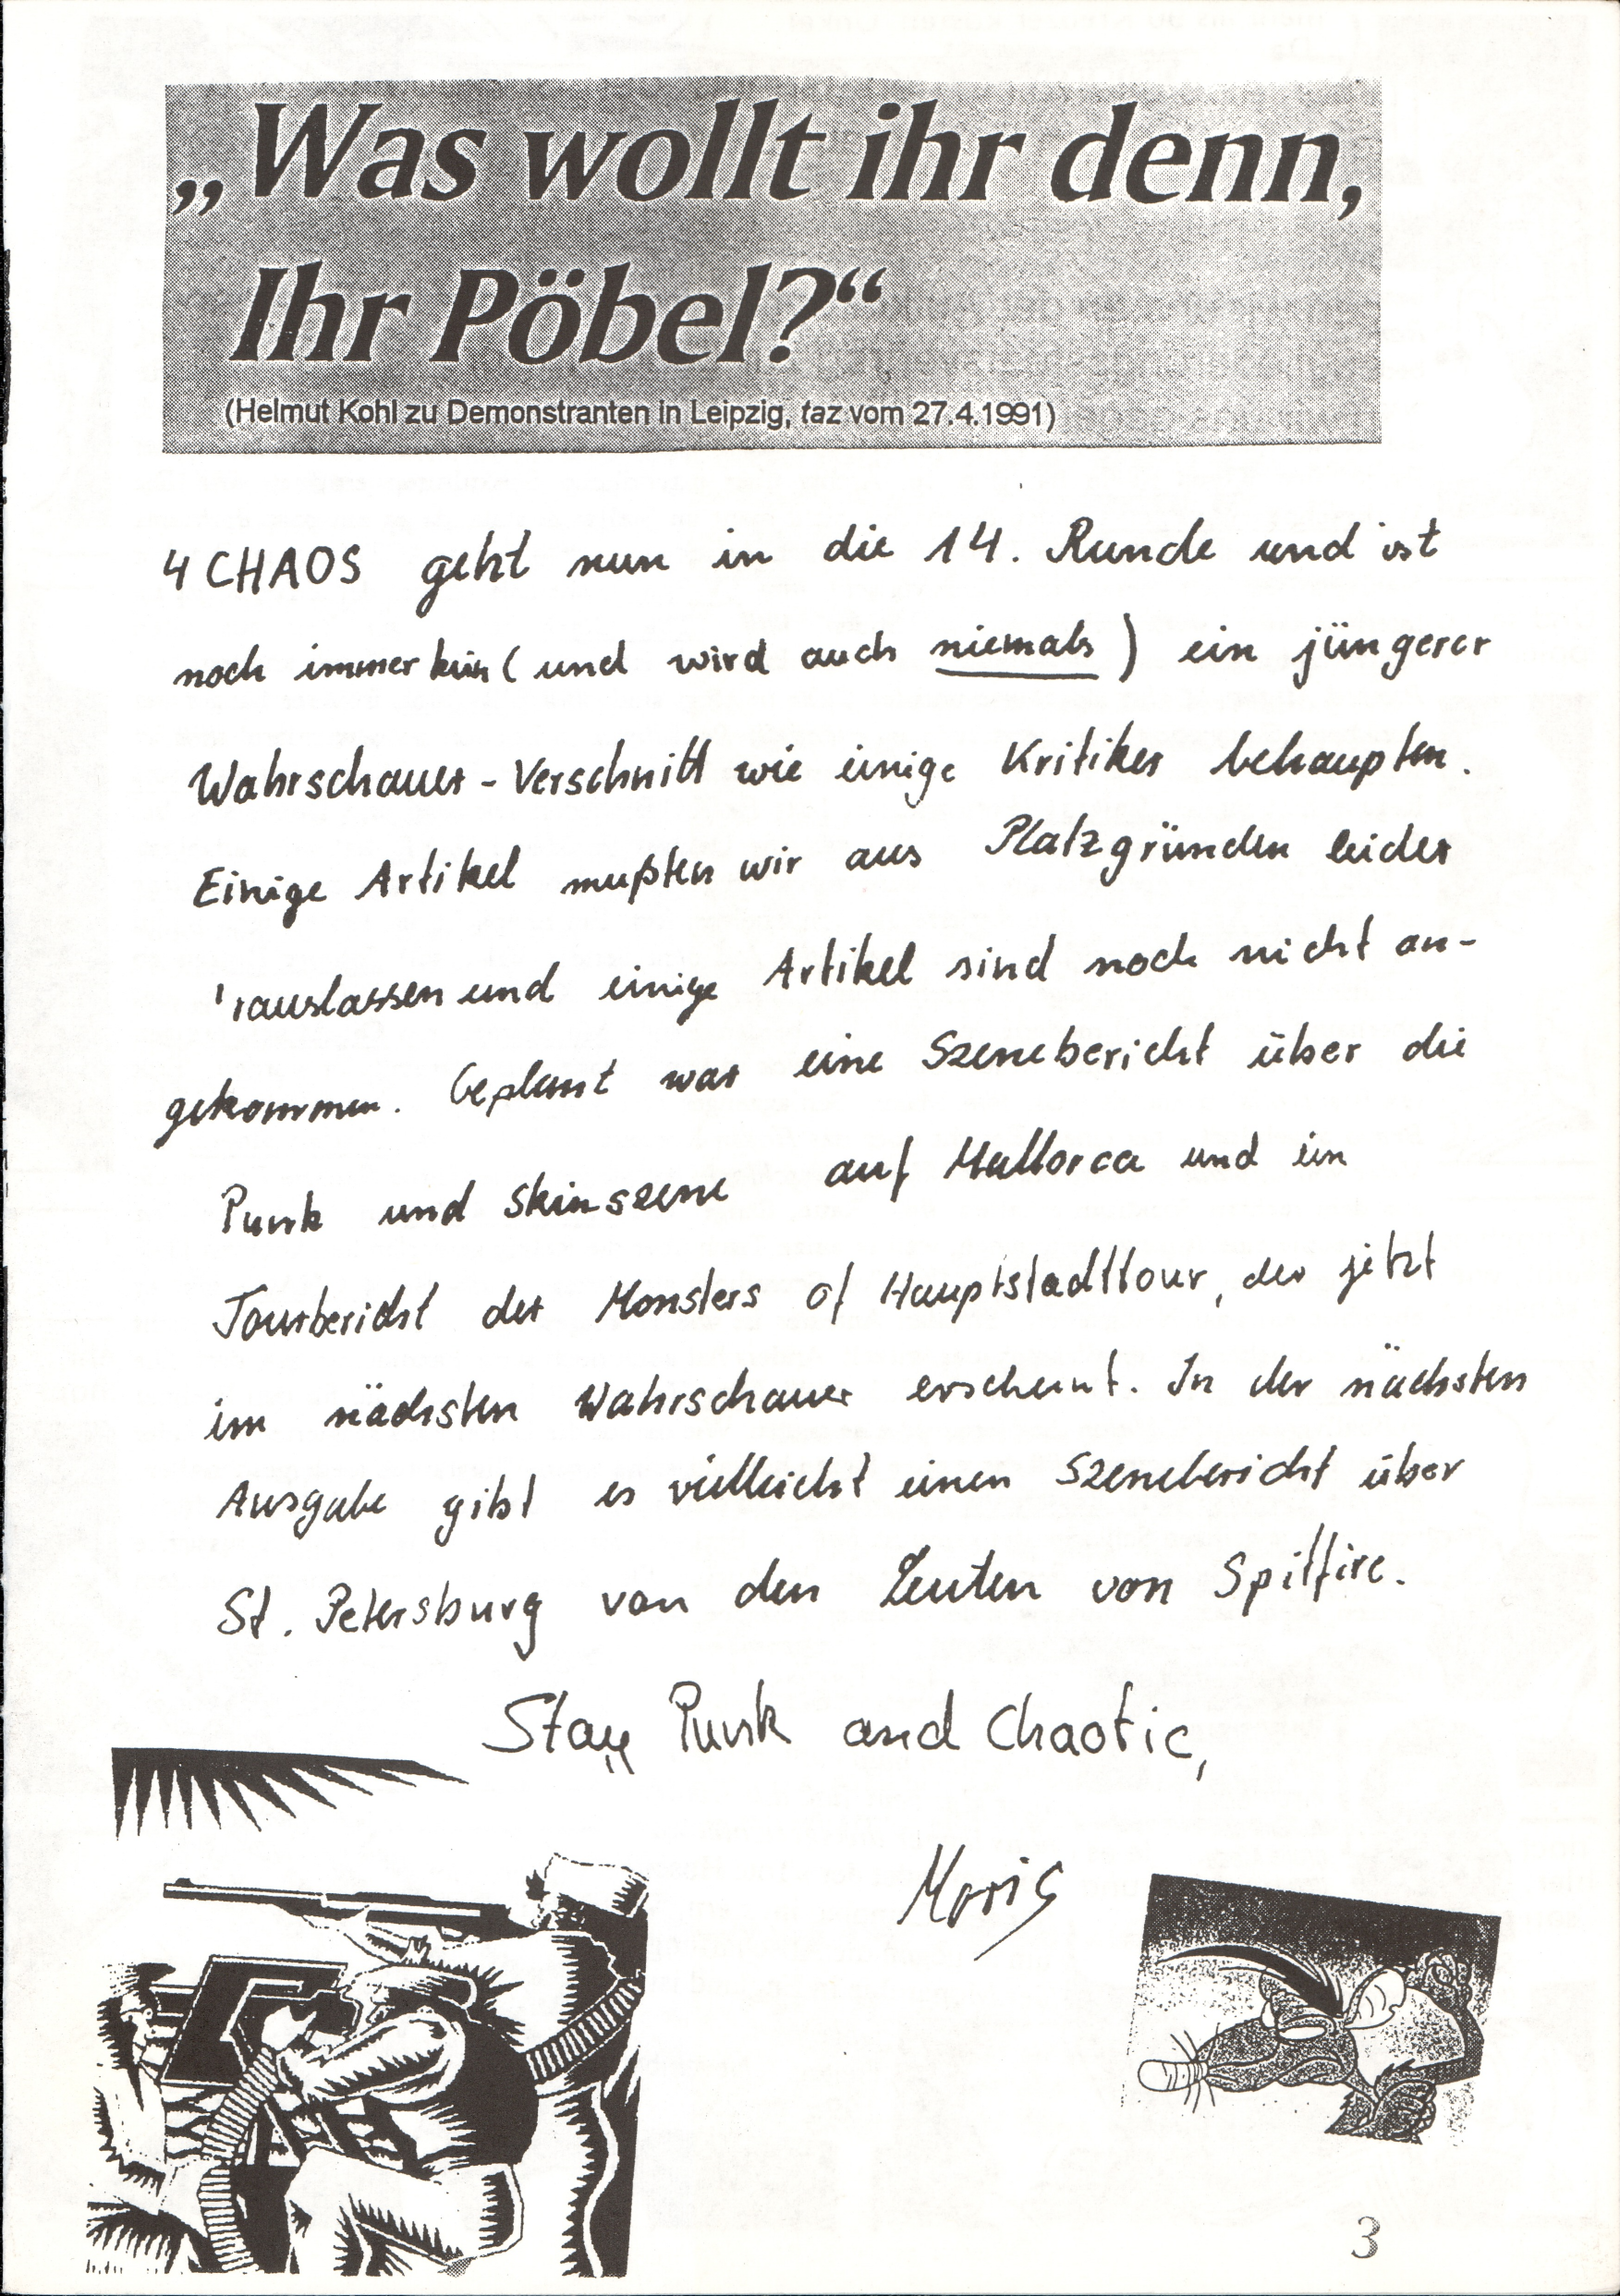 „Was wollt ihr denn,
Ihr Pöbel?“
(Helmut Kohl zu Demonstranten in Leipzig, taz vom 27.4.1991)
4 CHAOS geht nun in die 14. Runde und ist
noch immer kein (und wird auch niemals) ein jüngerer
Wahrschauer-Verschnitt wie einige Kritiker behaupten.
Einige Artikel mußten wir aus Platzgründen leider
rauslassen und einige Artikel sind noch nicht an-
gekommen. Geplant war eine Szenebericht über die
Punk und Skinszene auf Mallorca und ein
Tourbericht der Monsters of Hauptstadttour, der jetzt
im nächsten Wahrschauer erscheint. In der nächsten
Ausgabe gibt es vielleicht einen Szenebericht über
St. Petersburg von den Leuten von Spitfire.
Stay Punk and Chaotic,
Moris
3